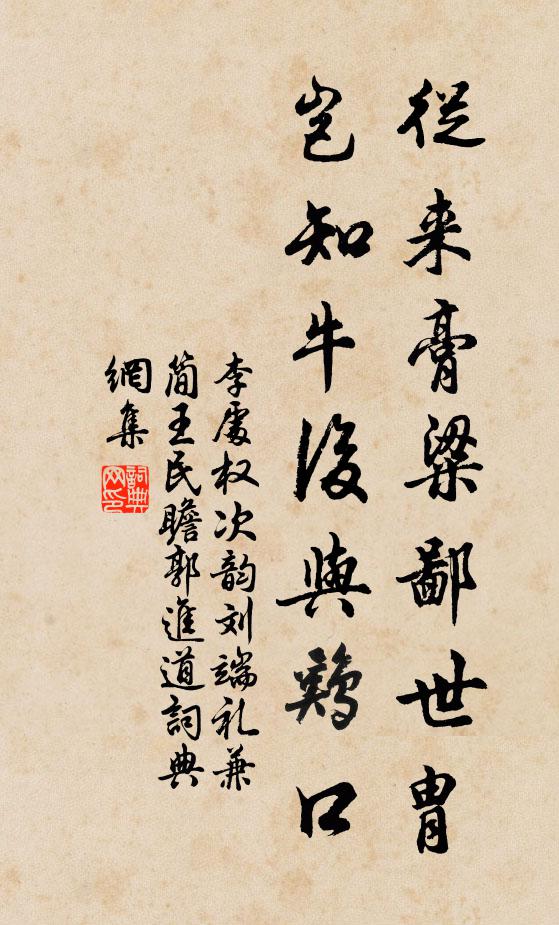 從来膏粱鄙世胄
岂知牛後與鷄口
李處权次韵刘端礼兼
简王民瞻郭進道詞典
網集
詞典
网印